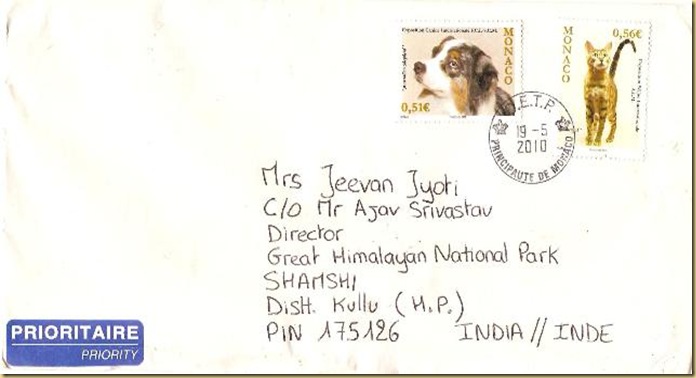 MONACO
0,51€
MONACO
0,56€
E.T.P.
19 -5
2010
PRINCIPAUTE DE MONACO
Mrs Jeevan Jyoti
C/O Mr Ajav Srivastav
Director
Great Himalayan National Park
SHAMSHI
Distt. Kullu (H.P.)
PIN 175126 INDIA // INDE
PRIORITAIRE
PRIORITY